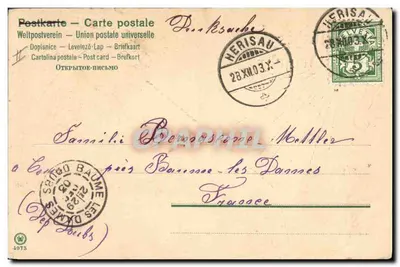 Postkarte – Carte postale
Weltpostverein – Union postale universelle
Dopisnice – Levelező-Lap – Briefkaart
Cartolina postale – Post card – Brefkort
Открытое-письмо
Drucksache
HERISAU
28.XII.03.X
Familie Mettler
à près Baume les Dames
France
(Dep Doubs)
BAUME LES DAMES DOUBS
4975